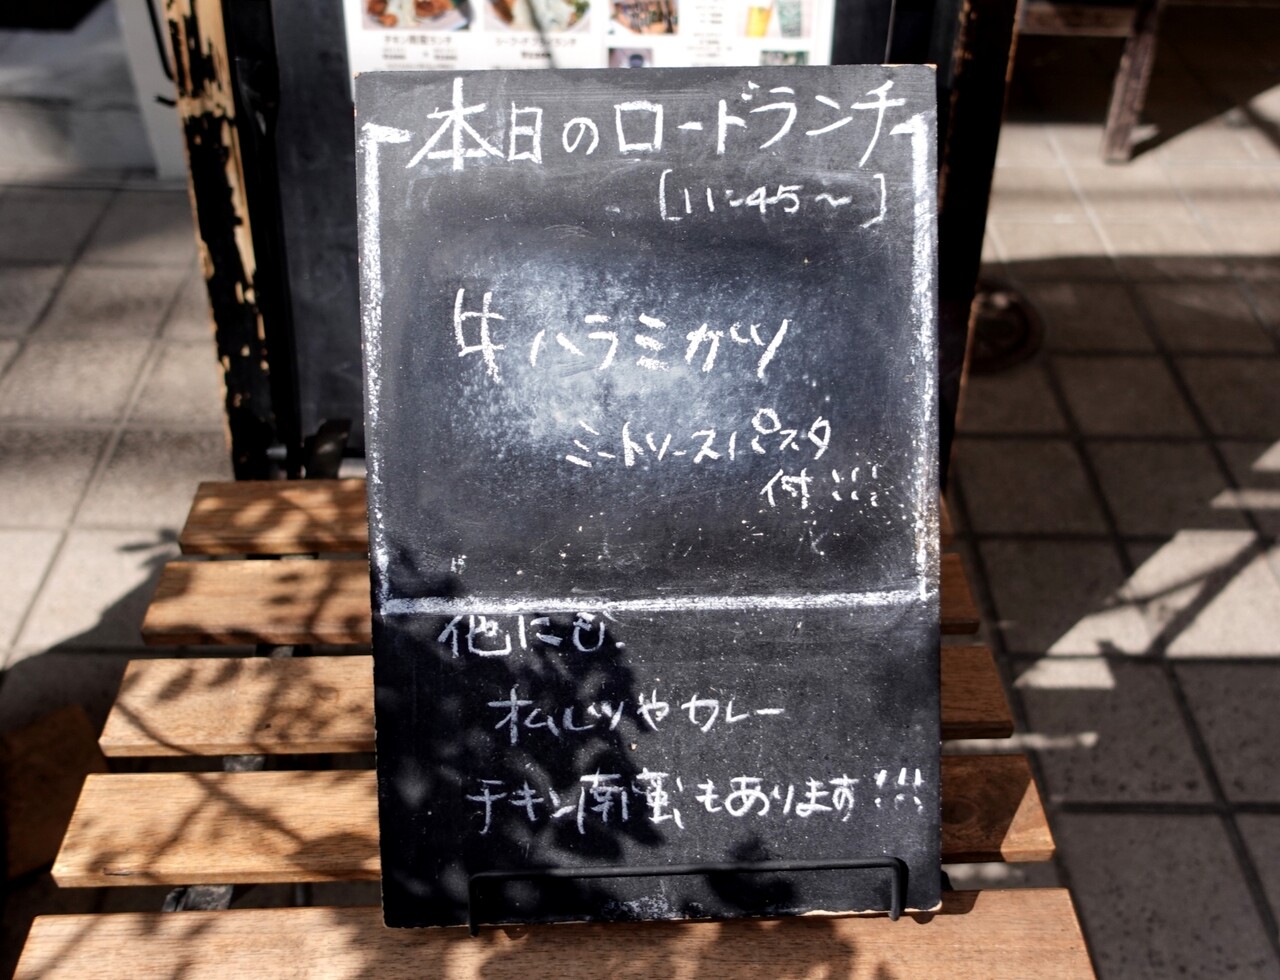 チキン南蛮ランチ
本日のロードランチ
[11:45~]
牛ハラミカツ
ミートソースパスタ
付!!!
他にも.
オムレツやカレー
チキン南蛮もあります!!!